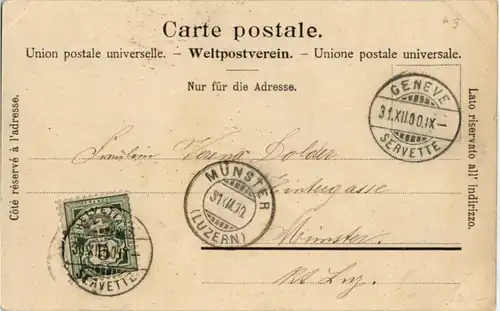 Carte postale.
Union postale universelle. – Weltpostverein. – Unione postale universale.
Nur für die Adresse.
Côté réservé à l'adresse.
Lato riservato all' indirizzo.
GENEVE
31.XII.00.IX–
SERVETTE
Fräulein Verena Dolder
Hintergasse
Münster
Kt. Luz.
MÜNSTER
31.XII.00.
(LUZERN)
5
SERVETTE